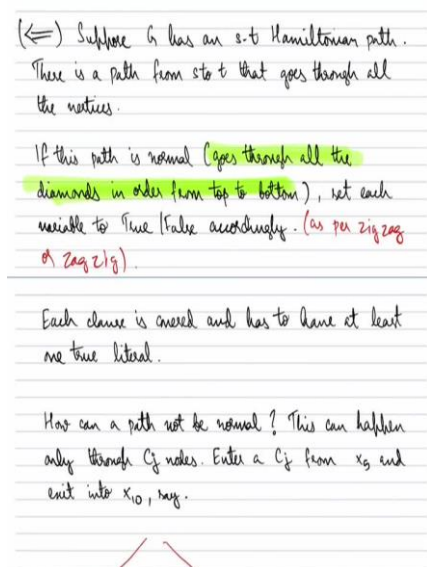 (⇐) Suppose G has an s-t Hamiltonian path.
There is a path from s to t that goes through all
the vertices.
If this path is normal (goes through all the
diamonds in order from top to bottom), set each
variable to True/False accordingly. (as per zigzag
or zagzig).
Each clause is covered and has to have at least
one true literal.
How can a path not be normal? This can happen
only through Cj nodes. Enter a Cj from x5 and
exit into x10, say.